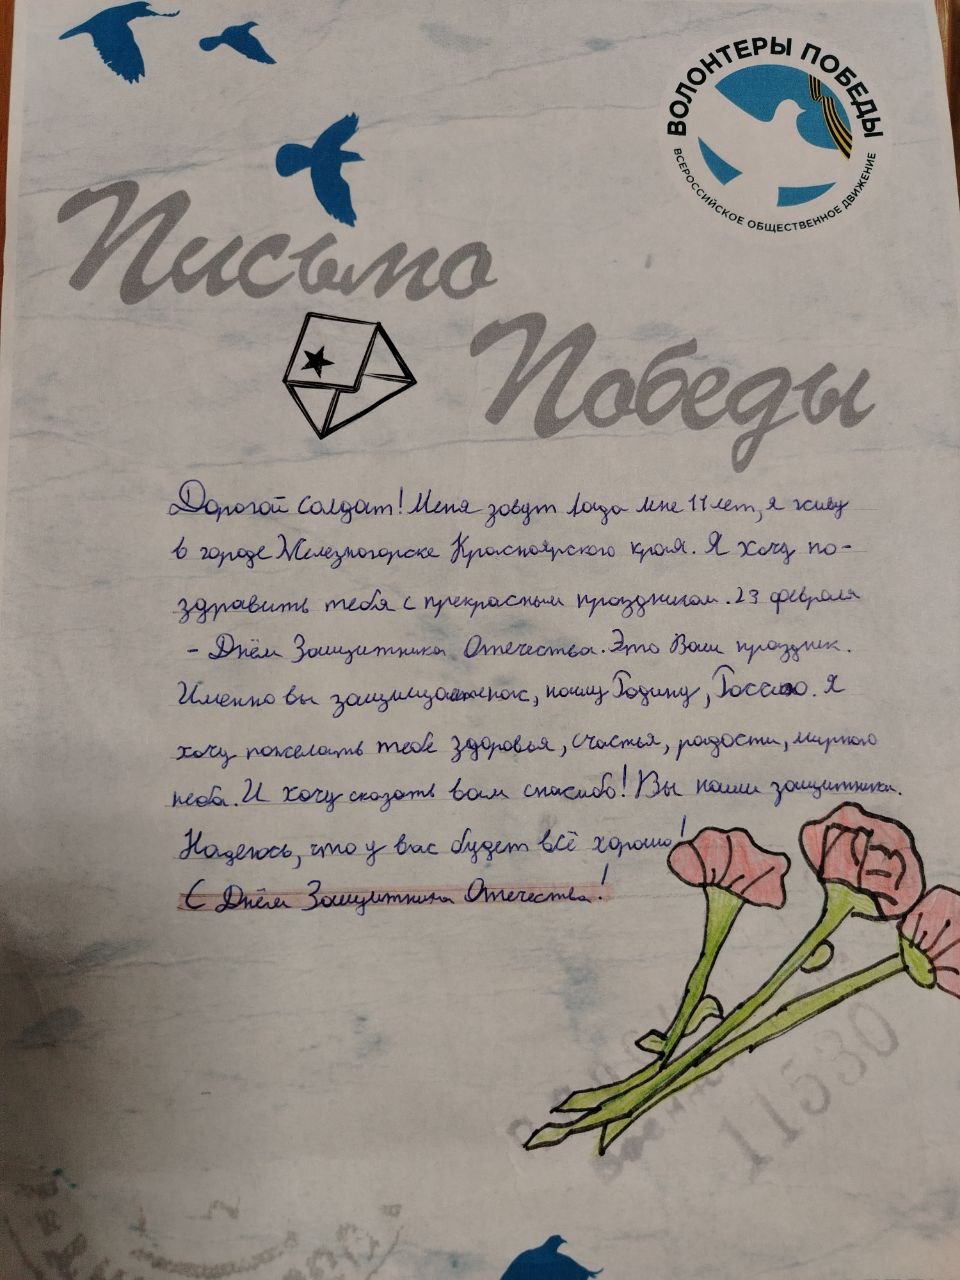 ВОЛОНТЕРЫ ПОБЕДЫ
ВСЕРОССИЙСКОЕ ОБЩЕСТВЕННОЕ ДВИЖЕНИЕ
Письмо
Победы
Дорогой солдат! Меня зовут мне 11 лет, я живу
в городе Железногорске Красноярского края. Я хочу по-
здравить тебя с прекрасным праздником. 23 февраля
- Днём Защитника Отечества. Это Ваш праздник.
Именно вы нашу Родину, Россию. Я
хочу пожелать тебе здоровья, счастья, радости, мирного
неба. И хочу сказать вам спасибо! Вы наши защитники.
Надеюсь, что у вас будет всё хорошо!
С Днём Защитника Отечества!
11530